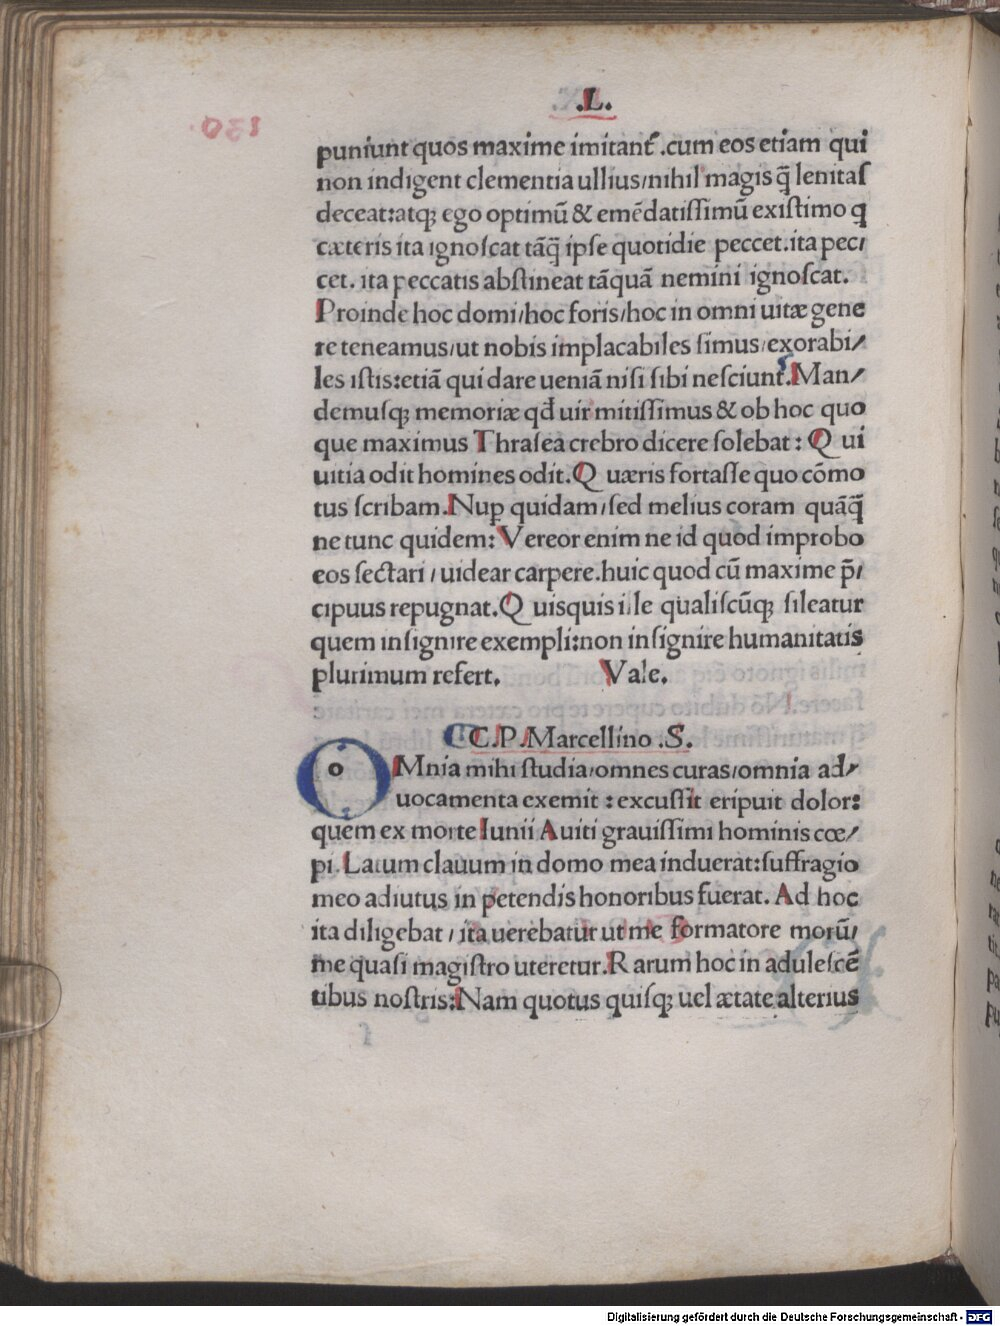 .L.
puniunt quos maxime imitant᷑ .cum eos etiam qui
non indigent clementia ullius/nihil magis q̃ lenitaſ
deceat:atqꝫ ego optimū & emēdatiſſimū exiſtimo q
cæteris ita ignoſcat tāq̃ ipſe quotidie peccet.ita pec/
cet. ita peccatis abſtineat tāquā nemini ignoſcat.
Proinde hoc domi/hoc foris/hoc in omni uitæ gene
re teneamus/ut nobis implacabiles ſimus/exorabi/
les iſtis:etiā qui dare ueniā niſi ſibi neſciunt.Man/
demuſqꝫ memoriæ qđ uir mitiſſimus & ob hoc quo
que maximus Thraſea crebro dicere ſolebat: Q ui
uitia odit homines odit.Q uæris fortaſſe quo cōmo
tus ſcribam.Nuꝑ quidam/ſed melius coram quāq̃
ne tunc quidem: Vereor enim ne id quod improbo
eos ſectari / uidear carpere.huic quod cū maxime p̃/
cipuus repugnat.Q uisquis ille qualiſcūqꝫ ſileatur
quem inſignire exempli:non inſignire humanitatis
plurimum refert. Vale.
C.P.Marcellino .S.
o MNia mihi ſtudia/omnes curas/omnia ad/
uocamenta exemit : excuſſit eripuit dolor:
quem ex morte Iunii Auiti grauiſſimi hominis cœ/
pi.Latum clauum in domo mea induerat:ſuffragio
meo adiutus in petendis honoribus fuerat. Ad hoc
ita diligebat / ita uerebatur ut me formatore morū/
me quaſi magiſtro uteretur.R arum hoc in aduleſcē
tibus noſtris:Nam quotus quiſqꝫ uel ætate alterius
Digitalisierung gefördert durch die Deutsche Forschungsgemeinschaft - DFG